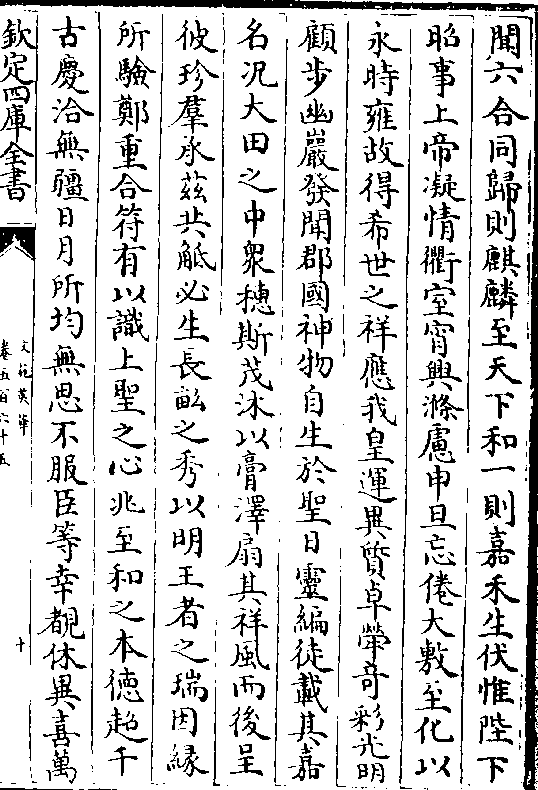 聞六合同歸則麒麟至天下和一則嘉禾生伏惟陛下
昭事上帝凝情衢室宵興滌慮申旦忘倦大敷至化以
永時雍故得希世之祥應我皇運異質卓犖奇彩光明
顧步幽巖發聞郡國神物自生於聖日靈編徒載其嘉
名况大田之中衆穗斯茂沐以膏澤扇其祥風而後呈
彼珍羣永茲共觝必生長畝之秀以明王者之瑞因縁
所驗鄭重合符有以識上聖之心兆至和之本德超千
古慶洽無疆日月所均無思不服臣等幸覩休異喜萬
欽定四庫全書
文苑英華
卷五百六十五
十